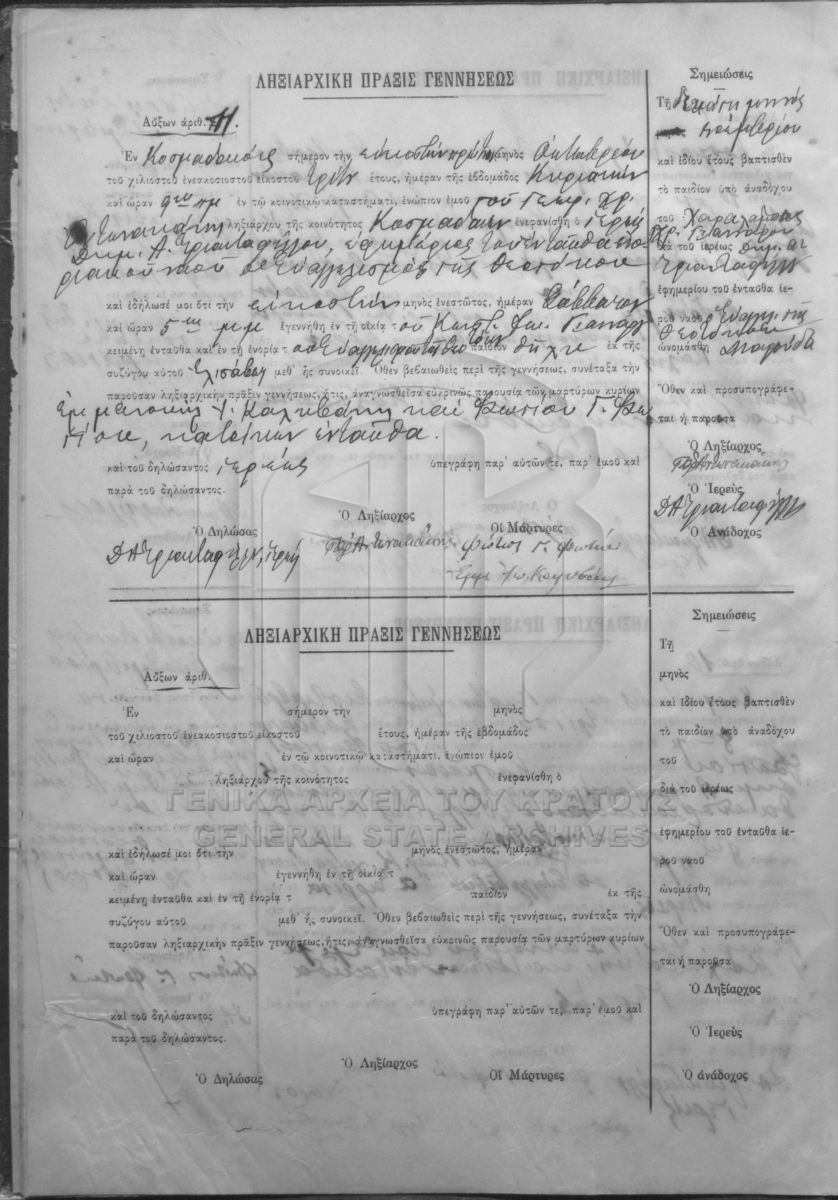 ΛΗΞΙΑΡΧΙΚΗ ΠΡΑΞΙΣ ΓΕΝΝΗΣΕΩΣ
Αὔξων ἀριθ. 11.
Ἐν Κοσμαδαίοις σήμερον τὴν εἰκοστὴν πρώτην μηνὸς Ὀκτωβρίου
τοῦ χιλιοστοῦ ἐνεακοσιοστοῦ εἰκοστοῦ τρίτου ἔτους, ἡμέραν τῆς ἑβδομάδος Κυριακὴν
καὶ ὥραν 9ην πμ ἐν τῷ κοινοτικῷ καταστήματι, ἐνώπιον ἐμοῦ τοῦ Γεωρ. Χρ.
Ἀντωνακάκη ληξιάρχου τῆς κοινότητος Κοσμαδαίων ἐνεφανίσθη ὁ ἱερεὺς
Δημ. Α. Τριανταφύλλου, ἐφημέριος τοῦ ἐνταῦθα ἐνο
ριακοῦ ναοῦ ὁ Εὐαγγελισμὸς τῆς Θεοτόκου
καὶ ἐδήλωσέ μοι ὅτι τὴν εἰκοστὴν μηνὸς ἐνεστῶτος, ἡμέραν Σάββατον
καὶ ὥραν 5ην μμ ἐγεννήθη ἐν τῇ οἰκίᾳ τοῦ Κωστ.
κειμένῃ ἐνταῦθα καὶ ἐν τῇ ἐνορίᾳ τ παιδίον θῆλυ ἐκ τῆς
συζύγου αὐτοῦ Ἐλισάβετ μεθ᾽ ἧς συνοικεῖ. Ὅθεν βεβαιωθεὶς περὶ τῆς γεννήσεως, συνέταξα τὴν
παροῦσαν ληξιαρχικὴν πρᾶξιν γεννήσεως, ἥτις, ἀναγνωσθεῖσα εὐκρινῶς παρουσίᾳ τῶν μαρτύρων κυρίων
Ἐμμανουὴλ καὶ Φωτίου Γ. Φω
τίου, κατοίκων ἐνταῦθα.
καὶ τοῦ δηλώσαντος ἱερέως ὑπεγράφη παρ᾽ αὐτῶν τε, παρ᾽ ἐμοῦ καὶ
παρὰ τοῦ δηλώσαντος.
Ὁ Ληξίαρχος
Ὁ Δηλώσας Οἱ Μάρτυρες
Δ Α Τριανταφύλλου, ἱερεὺς Φώτιος Γ. Φωτίου
Σημειώσεις
Τῇ δεκάτῃ μηνὸς
Νοεμβρίου
καὶ ἰδίου ἔτους βαπτισθὲν
τὸ παιδίον ὑπὸ ἀναδόχου
τοῦ Χαραλάμπους
διὰ τοῦ ἱερέως Δημ. Α.
Τριανταφύλλου
ἐφημερίου τοῦ ἐνταῦθα ἱε-
ροῦ ναοῦ ὁ Εὐαγγ. τῆς
Θεοτόκου
ὠνομάσθη
Ὅθεν καὶ προσυπογράφε-
ται ἡ παροῦσα
Ὁ Ληξίαρχος
Ὁ Ἱερεὺς
Δ Α Τριανταφύλλου
Ὁ Ἀνάδοχος
ΛΗΞΙΑΡΧΙΚΗ ΠΡΑΞΙΣ ΓΕΝΝΗΣΕΩΣ
Αὔξων ἀριθ.
Ἐν σήμερον τὴν μηνὸς
τοῦ χιλιοστοῦ ἐνεακοσιοστοῦ εἰκοστοῦ ἔτους, ἡμέραν τῆς ἑβδομάδος
καὶ ὥραν ἐν τῷ κοινοτικῷ καταστήματι, ἐνώπιον ἐμοῦ
ληξιάρχου τῆς κοινότητος ἐνεφανίσθη ὁ
ΓΕΝΙΚΑ ΑΡΧΕΙΑ ΤΟΥ ΚΡΑΤΟΥΣ
GENERAL STATE ARCHIVES
καὶ ἐδήλωσέ μοι ὅτι τὴν μηνὸς ἐνεστῶτος, ἡμέραν
καὶ ὥραν ἐγεννήθη ἐν τῇ οἰκίᾳ τ
κειμένῃ ἐνταῦθα καὶ ἐν τῇ ἐνορίᾳ τ παιδίον ἐκ τῆς
συζύγου αὐτοῦ μεθ᾽ ἧς συνοικεῖ. Ὅθεν βεβαιωθεὶς περὶ τῆς γεννήσεως, συνέταξα τὴν
παροῦσαν ληξιαρχικὴν πρᾶξιν γεννήσεως, ἥτις, ἀναγνωσθεῖσα εὐκρινῶς παρουσίᾳ τῶν μαρτύρων κυρίων
καὶ τοῦ δηλώσαντος ὑπεγράφη παρ᾽ αὐτῶν τε, παρ᾽ ἐμοῦ καὶ
παρὰ τοῦ δηλώσαντος.
Ὁ Ληξίαρχος
Ὁ Δηλώσας Οἱ Μάρτυρες
Σημειώσεις
Τῇ
μηνὸς
καὶ ἰδίου ἔτους βαπτισθὲν
τὸ παιδίον ὑπὸ ἀναδόχου
τοῦ
διὰ τοῦ ἱερέως
ἐφημερίου τοῦ ἐνταῦθα ἱε-
ροῦ ναοῦ
ὠνομάσθη
Ὅθεν καὶ προσυπογράφε-
ται ἡ παροῦσα
Ὁ Ληξίαρχος
Ὁ Ἱερεὺς
Ὁ ἀνάδοχος